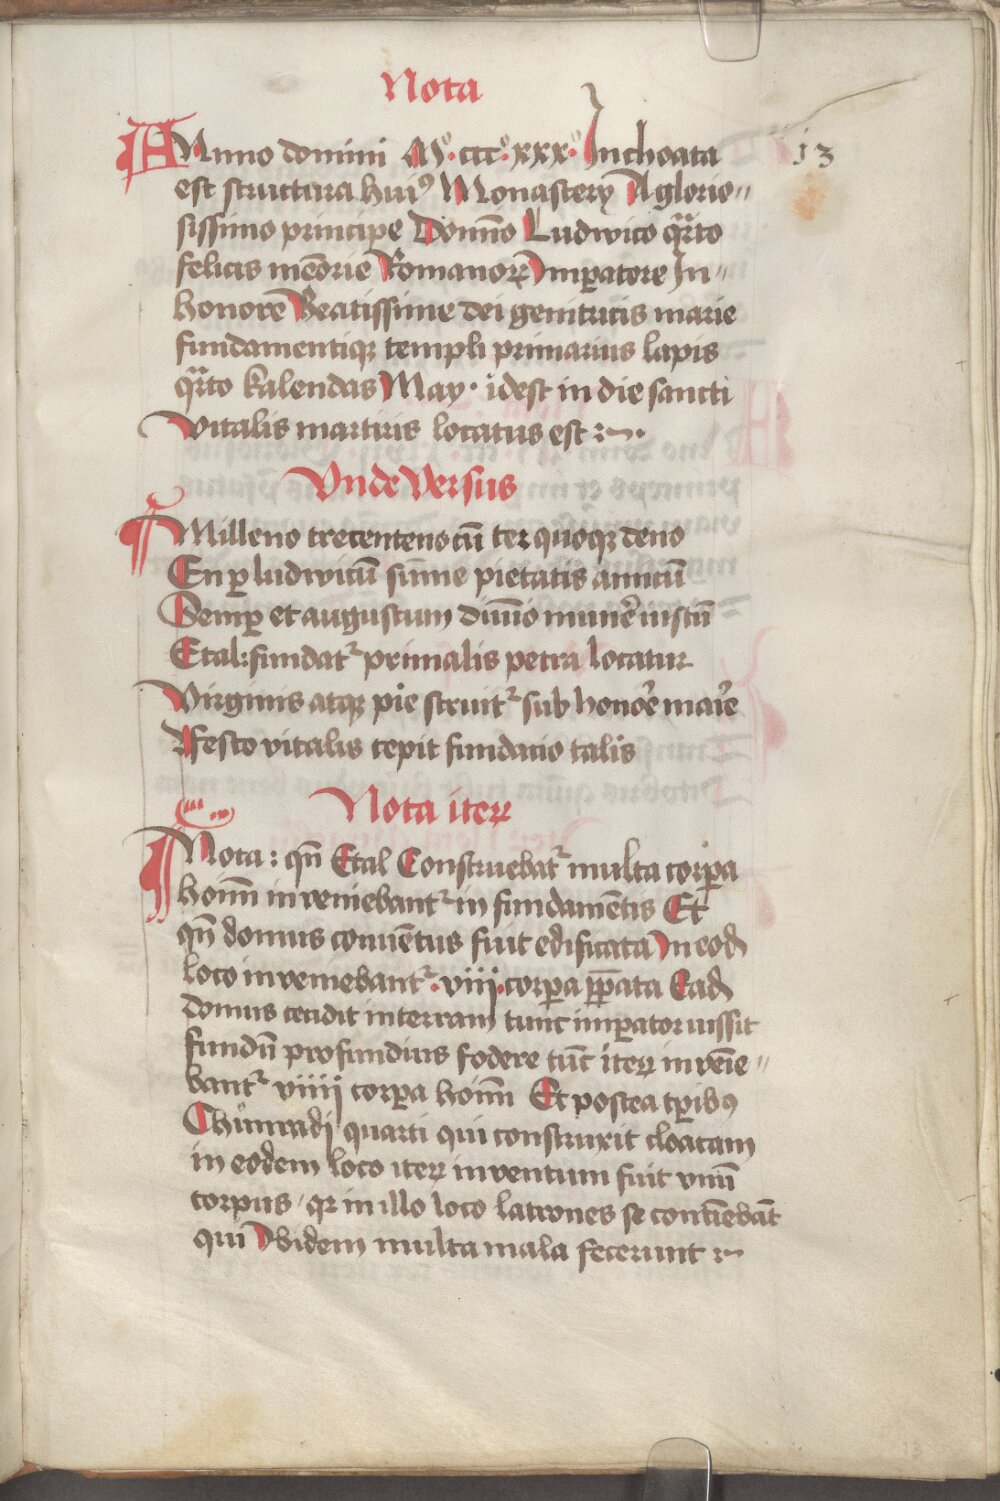 Nota
ANno domini Mº·cccº·xxxº· Inchoata
13
est structura hui9 Monastery A glorio=
sissimo principe Domīo Ludwico qᷓrto
felicis mēorie Romanoꝝ Imꝑatore In=
honorē Beatissime dei genitricis marie
fundamentiqꝫ templi primarius lapis
qᷓrto kalendas May · idest in die sancti
Vitalis martiris locatus est :~·
Vnde Versus
Milleno trecenteno cū ter quoqꝫ deno
En ꝑ ludwicū sūme pietatis amicū
Semꝑ et augustum diuīo munē iustū
Etal: fundat᷑ primalis petra locatur
Virginis atqꝫ pie struit᷑ sub honōe maīe
Ifesto vitalis cepit fundacio talis
Nota iteꝝ
Nota : qn̄ Etal Construebat᷑ multa corꝑa
hoīm inveniebant᷑ in fundamētis Et
qn̄ domus conuētus fuit edificata In eod̄
loco inveniebant᷑ ·viiij· corꝑa ꝑꝑata Ead̄
domus cecidit interram tunc imꝑator iussit
fundū profundius fodere tūc iteꝝ invēie=
bant᷑ viiij corꝑa hoīm Et postea tꝑib9
Chůnradj quarti qui construxit cloacam
in eodem loco iteꝝ inventum fuit vnū
corpus / qꝛ in illo loco latrones se contīebāt
qui Ibidem multa mala fecerunt :~